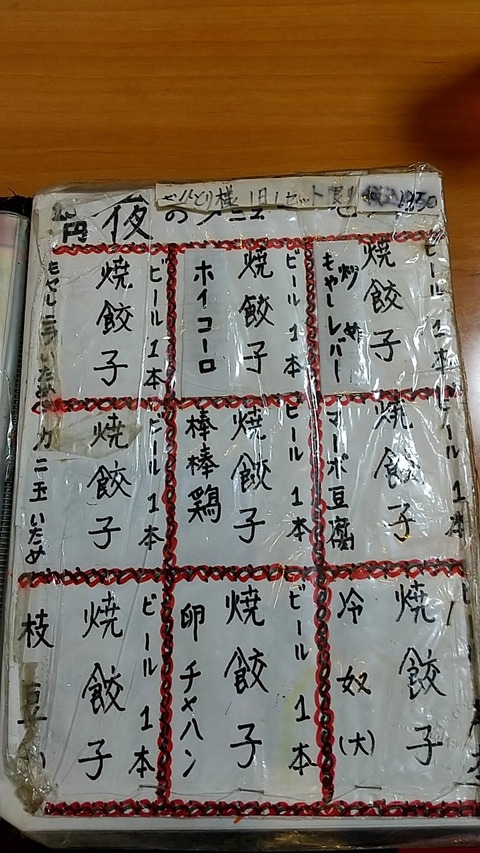 夜の
おひとり様 1日1セット限り 税込1930
円
ビール 1本
焼餃子
もやしレバー炒め
ビール 1本
焼餃子
ホイコーロ
ビール 1本
焼餃子
ビール 1本
焼餃子
マーボ豆腐
ビール 1本
焼餃子
棒棒鶏
ビール 1本
焼餃子
カニ玉いため
焼餃子
冷奴(大)
ビール 1本
焼餃子
卵チャハン
ビール 1本
焼餃子
枝豆